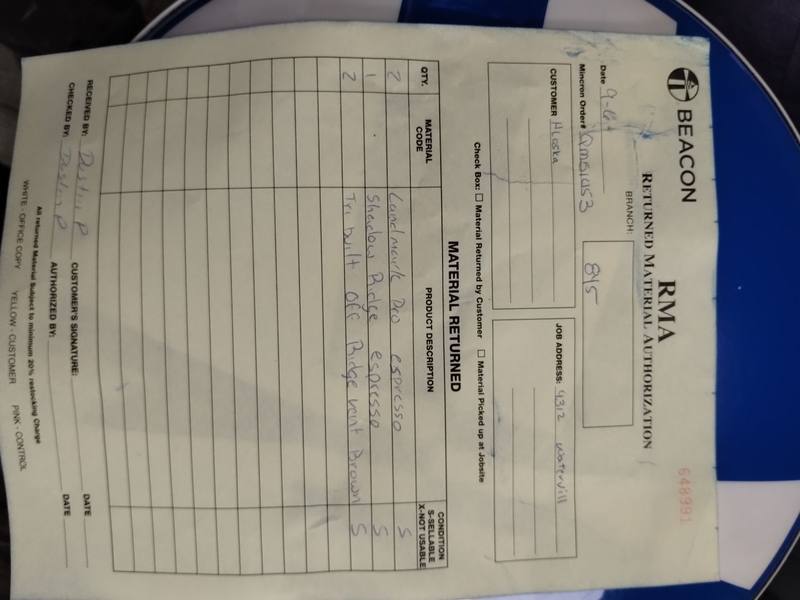 BEACON
RMA
RETURNED MATERIAL AUTHORIZATION
648991
Date 9-6-
BRANCH: 845
Mincron Order#
CUSTOMER Alaska
JOB ADDRESS: 4312 Watervill
Check Box: ☐ Material Returned by Customer ☐ Material Picked up at Jobsite
MATERIAL RETURNED
QTY. MATERIAL CODE PRODUCT DESCRIPTION CONDITION S-SELLABLE X-NOT USABLE
2 Landmark Pro espresso S
1 Shadow Ridge espresso S
2 Tri built Off Ridge vent Brown S
RECEIVED BY: Dustin P CUSTOMER'S SIGNATURE: DATE
CHECKED BY: Dustin P AUTHORIZED BY: DATE
All returned Material Subject to minimum 20% restocking Charge
WHITE - OFFICE COPY YELLOW - CUSTOMER PINK - CONTROL